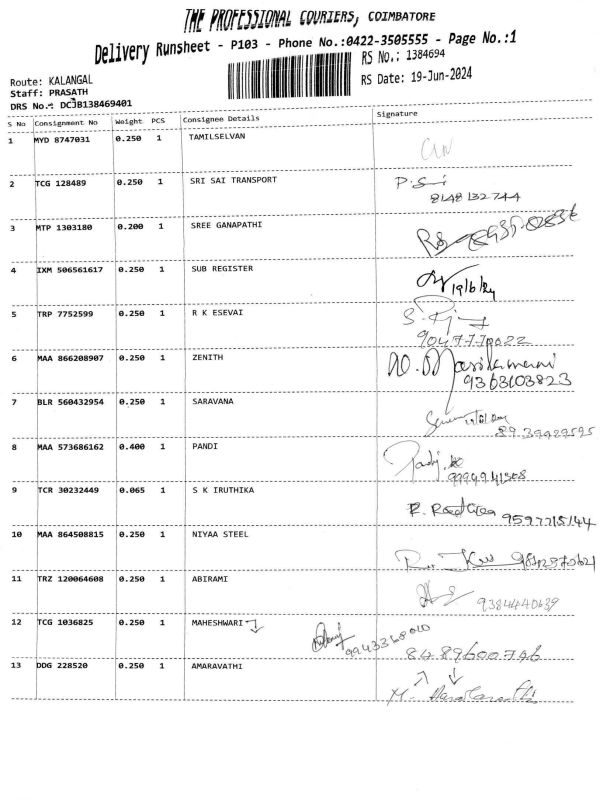 THE PROFESSIONAL COURIERS, COIMBATORE
Delivery Runsheet - P103 - Phone No.:0422-3505555 - Page No.:1
Route: KALANGAL
Staff: PRASATH
DRS No.: DCJB138469401
RS No.: 1384694
RS Date: 19-Jun-2024
S No Consignment No Weight PCS Consignee Details Signature
1 MYD 8747031 0.250 1 TAMILSELVAN
2 TCG 128489 0.250 1 SRI SAI TRANSPORT P.Sai
8148132744
3 MTP 1303180 0.200 1 SREE GANAPATHI
4 IXM 506561617 0.250 1 SUB REGISTER
19/6/24
5 TRP 7752599 0.250 1 R K ESEVAI
9047770022
6 MAA 866208907 0.250 1 ZENITH
9363103823
7 BLR 560432954 0.250 1 SARAVANA
8939489595
8 MAA 573686162 0.400 1 PANDI Pandi
9 TCR 30232449 0.065 1 S K IRUTHIKA
9597715144
10 MAA 864508815 0.250 1 NIYAA STEEL
11 TRZ 120064608 0.250 1 ABIRAMI
9384440639
12 TCG 1036825 0.250 1 MAHESHWARI 9943368010
8489600746
13 DDG 228520 0.250 1 AMARAVATHI